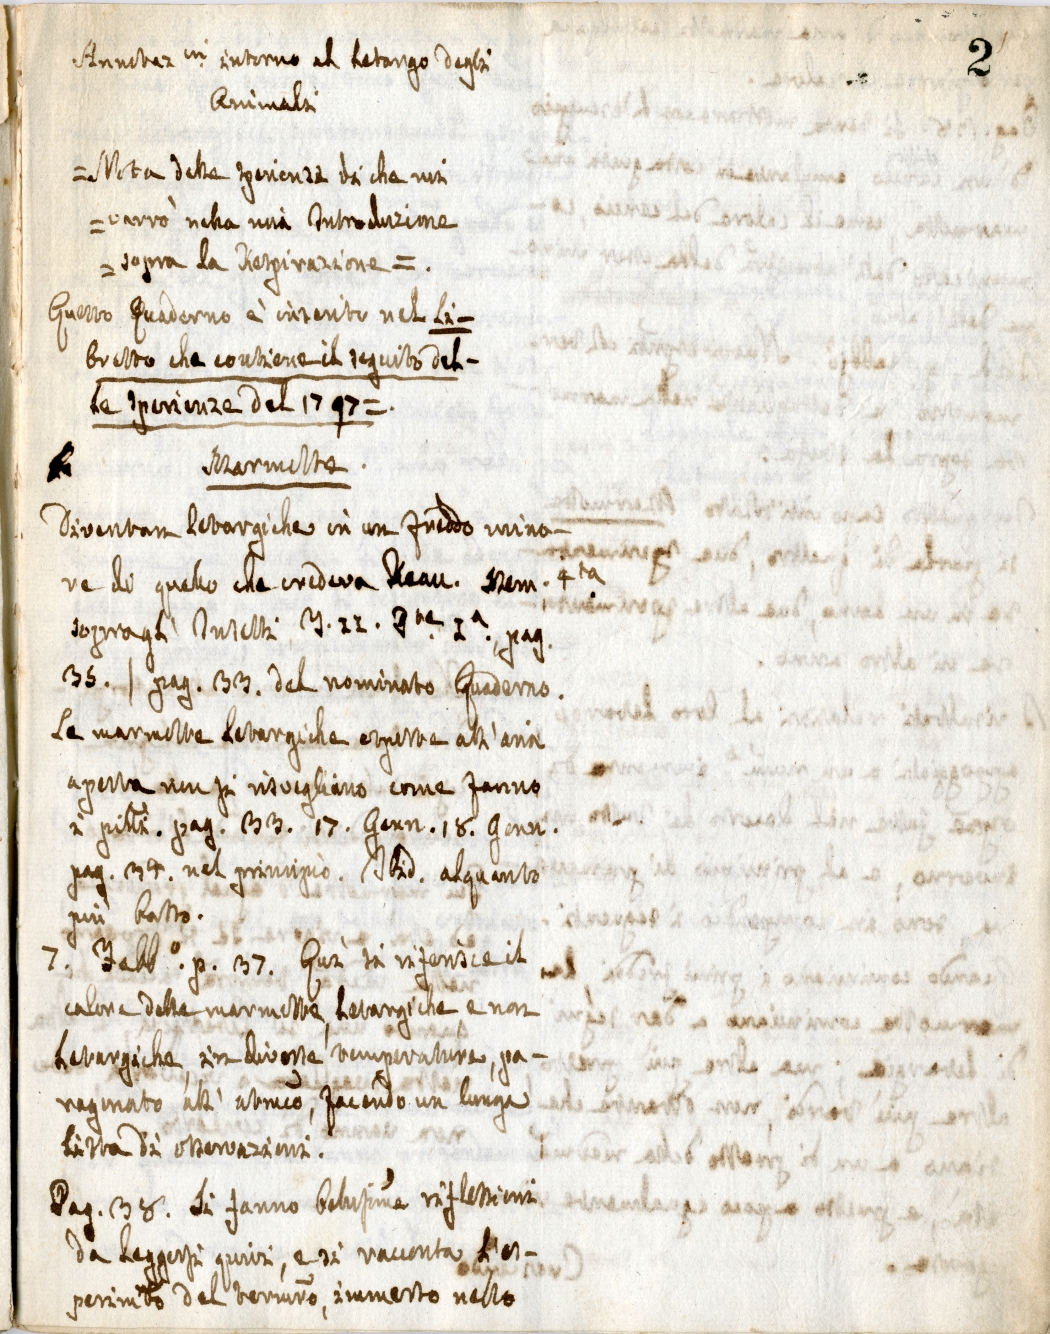 2
Annotaz.ni intorno al letargo degli
Animali
= Nota delle sperienze di che mi
= varrò nella mia Introduzione
= sopra la Respirazione = .
Questo Quaderno è inserito nel Li-
bretto che contiene il seguito del-
le sperienze del 1797 = .
Marmotte .
Diventan letargiche in un freddo mino-
re di quello che credeva Reau. Mem. 4ta
sopra gl' Insetti T. 22. Pne 2a., pag.
35. / pag. 33. del nominato Quaderno.
Le marmotte letargiche esposte all'aria
aperta non si risvegliano come fanno
i pistr. pag. 33. 17. Genn. 18. Genn.
pag. 34. nel principio. Ibid. alquanto
più basso.
7. Febb.o p. 37. Quì si riferisce il
calore delle marmotte, letargiche e non
letargiche, in diverse temperature, pa-
ragonato all' atmico, facendo un lunga
lista di osservazioni.
Pag. 38. Si fanno bellissime riflessioni
da leggersi quivi, e si racconta l'es-
perimto del termro, immerso nello